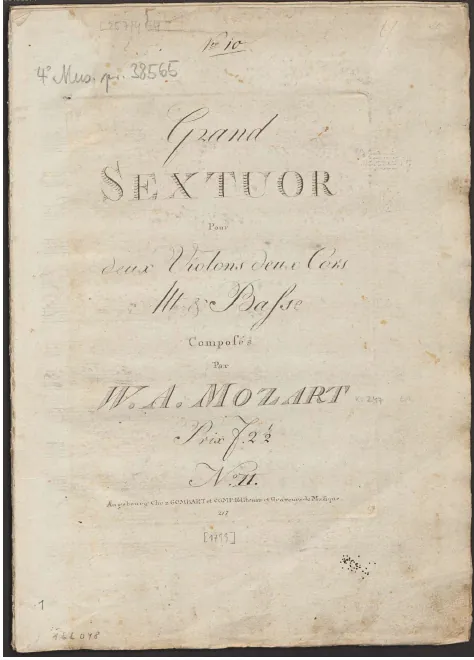 No 10
4° Mus. pr. 38565
Grand
SEXTUOR
Pour
deux Violons deux Cors
Alt & Baſse
Compoſés
Par
W. A. MOZART
Prix f. 2 ½
No. II.
Augsbourg Chez GOMBART et COMP. Editeurs et Graveurs de Muſique.
217
[1799]
1